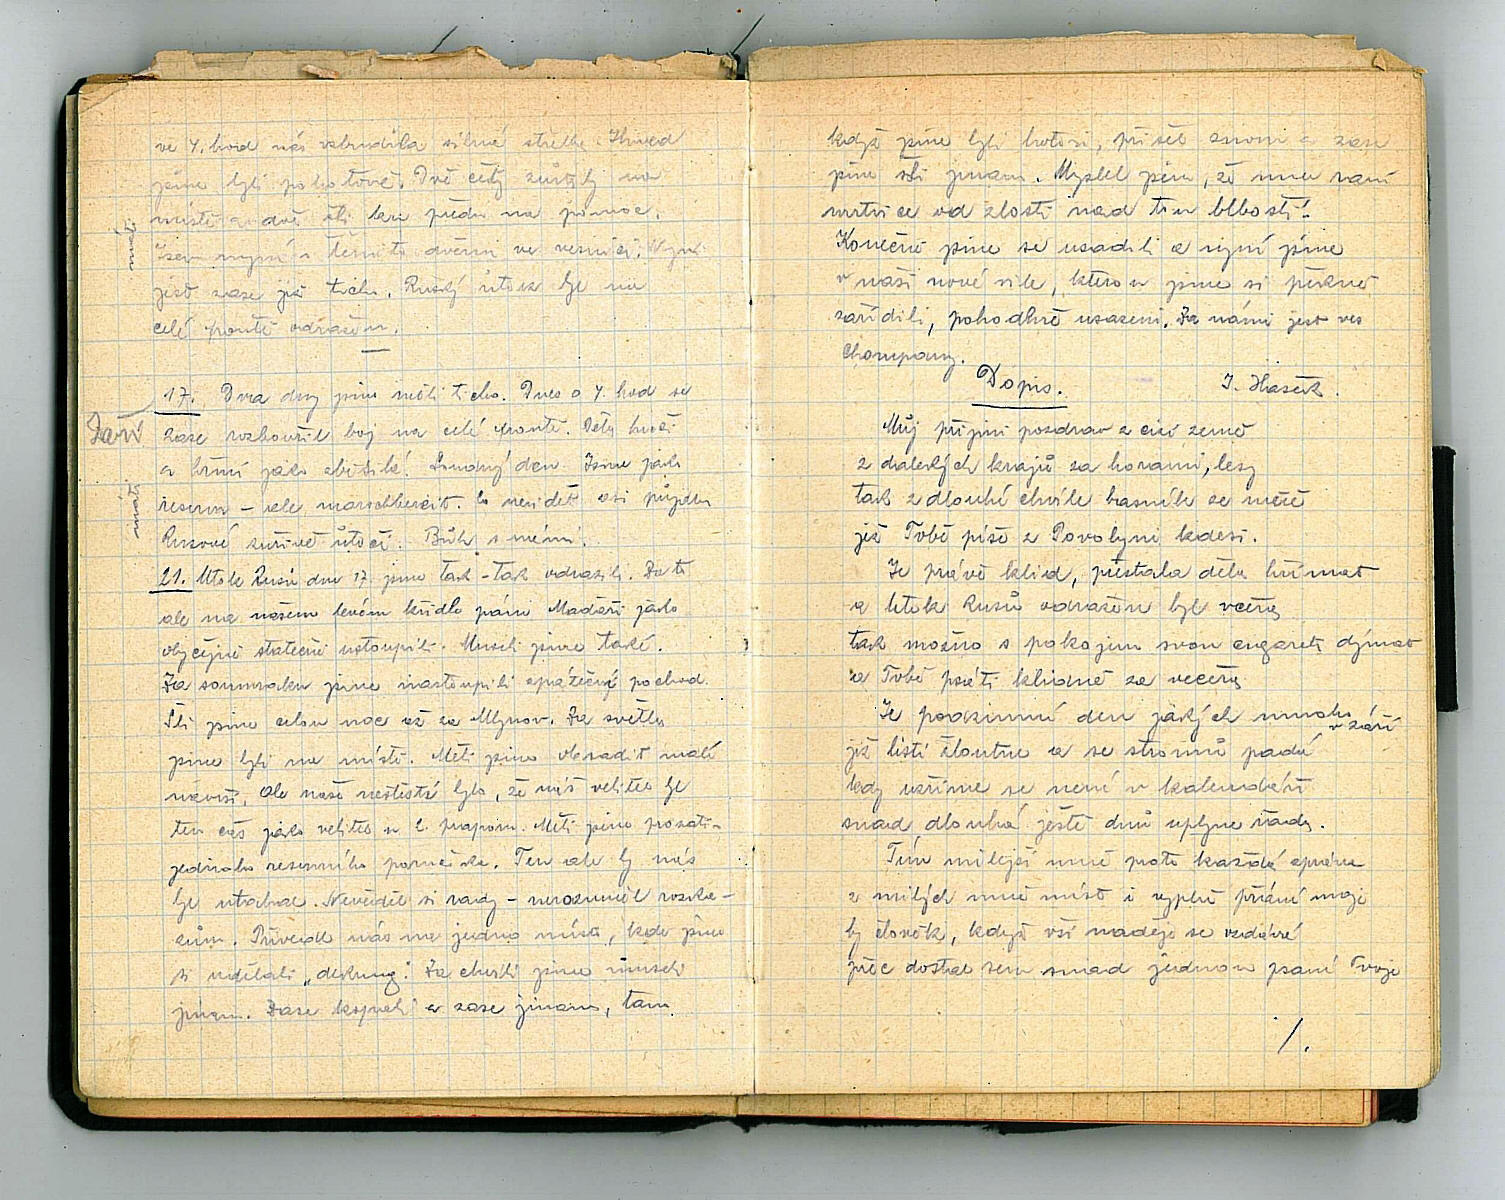 ve 4. hod nás vzbudila silná střelba. Ihned
jsme byli pohotově. Dvě čety zůstaly na
místě a dvě šli ku předu na pomoc.
Jsem nyní s těmito dvěmi ve vesnici. Nyní
jest zase již ticho. Ruský útok byl na
celé frontě odražen.
17. Dva dny jsme měli ticho. Dnes o 4. hod se
Září
zase rozbouřil boj na celé frontě. Děla hučí
a hřmí jako zběsilé! Soudný den. Jsme jako
reserva – ale marschbereit. Co nevidět asi půjdem
Rusové zuřivě útočí. Bůh s námi.
21. Útok Rusů dne 17. jsme tak-tak odrazili. Za to
ale na našem levém křídle páni Maďaři jako
obyčejně statečně ustoupili. Museli jsme také.
Za soumraku jsme nastoupili zpáteční pochod.
Šli jsme celou noc až za Mlynov. Za světla
jsme byli na místě. Měli jsme obsadit malé
návrší, ale naše neštěstí bylo, že náš velitel byl
ten čas jako velitel u 2. praporu. Měli jsme prozatí-
jednoho reservního poručíka. Ten ale by nás
byl utahal. Nevěděl si rady – nerozuměl rozka-
zům. Přivedl nás na jedno místo, kde jsme
si udělali „deckung". Za chvíli jsme museli
jinam. Zase kopali a zase jinam, tam
když jsme byli hotovi, přišel znovu a zase
jsme šli jinam. Myslel jsem, že mne raní
mrtvice od zlosti nad tou blbostí!
Konečně jsme se usadili a nyní jsme
v naší nové vile, kterou jsme si pěkně
zařídili, pohodlně usazeni. Za námi jest ves
Chorupany.
Dopis. J. Hašek.
Můj přijmi pozdrav z cizí země
z dalekých krajů za horami, lesy
tak z dlouhé chvíle básník se měře
jež Tobě píše z Povolyně kdesi.
Je právě klid, přestala děla hřímat
a útok Rusů odražen byl včera
tak možno s pokojem svou cigaretu dýmat
a Tobě psáti klidně za večera
Je podzimní den jakých mnoho v září
již listí žloutne a se stromů padá
kdy uzříme se není v kalendáři
snad dlouhá ještě dnů uplyne řada.
Tím milejší mně proto každá zpráva
z milých mně míst i vyplň přání moje
by člověk, když vší naděje se vzdává
přec dostal sem snad jednou psaní Tvoje
/.